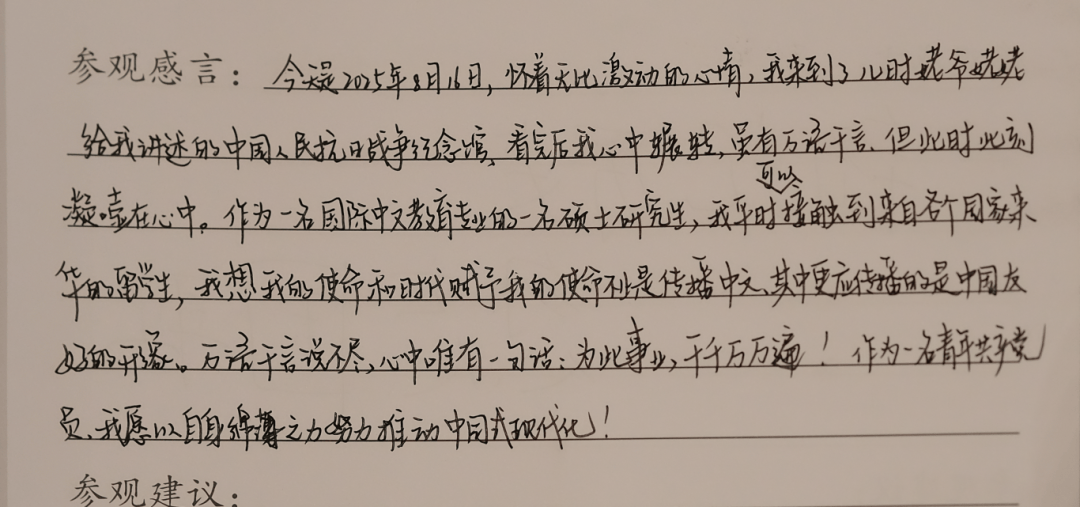 参观感言：今天是2025年8月16日，怀着无比激动的心情，我来到了儿时姥爷姥姥
给我讲述的中国人民抗日战争纪念馆，看完后我心中辗转，虽有万语千言，但此时此刻
凝噎在心中。作为一名国际中文教育专业的一名硕士研究生，我平时可以接触到来自各个国家来
华的留学生，我想我的使命和时代赋予我的使命不止是传播中文、其中更应传播的是中国友
好的形象。万语千言说不尽，心中唯有一句话：为此事业，千千万万遍！作为一名青年共产党
员，我愿以自身绵薄之力努力推动中国式现代化！
参观建议：